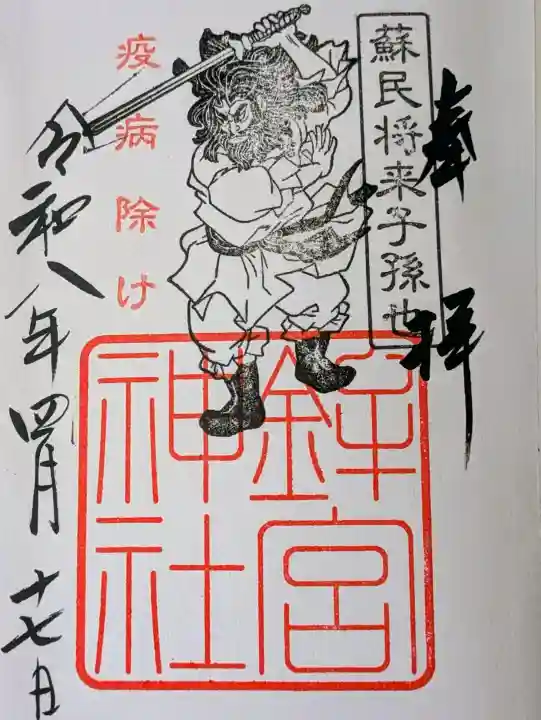 奉拝
蘇民将来子孫也
疫病除け
令和八年四月十七日
鉾宮
神社